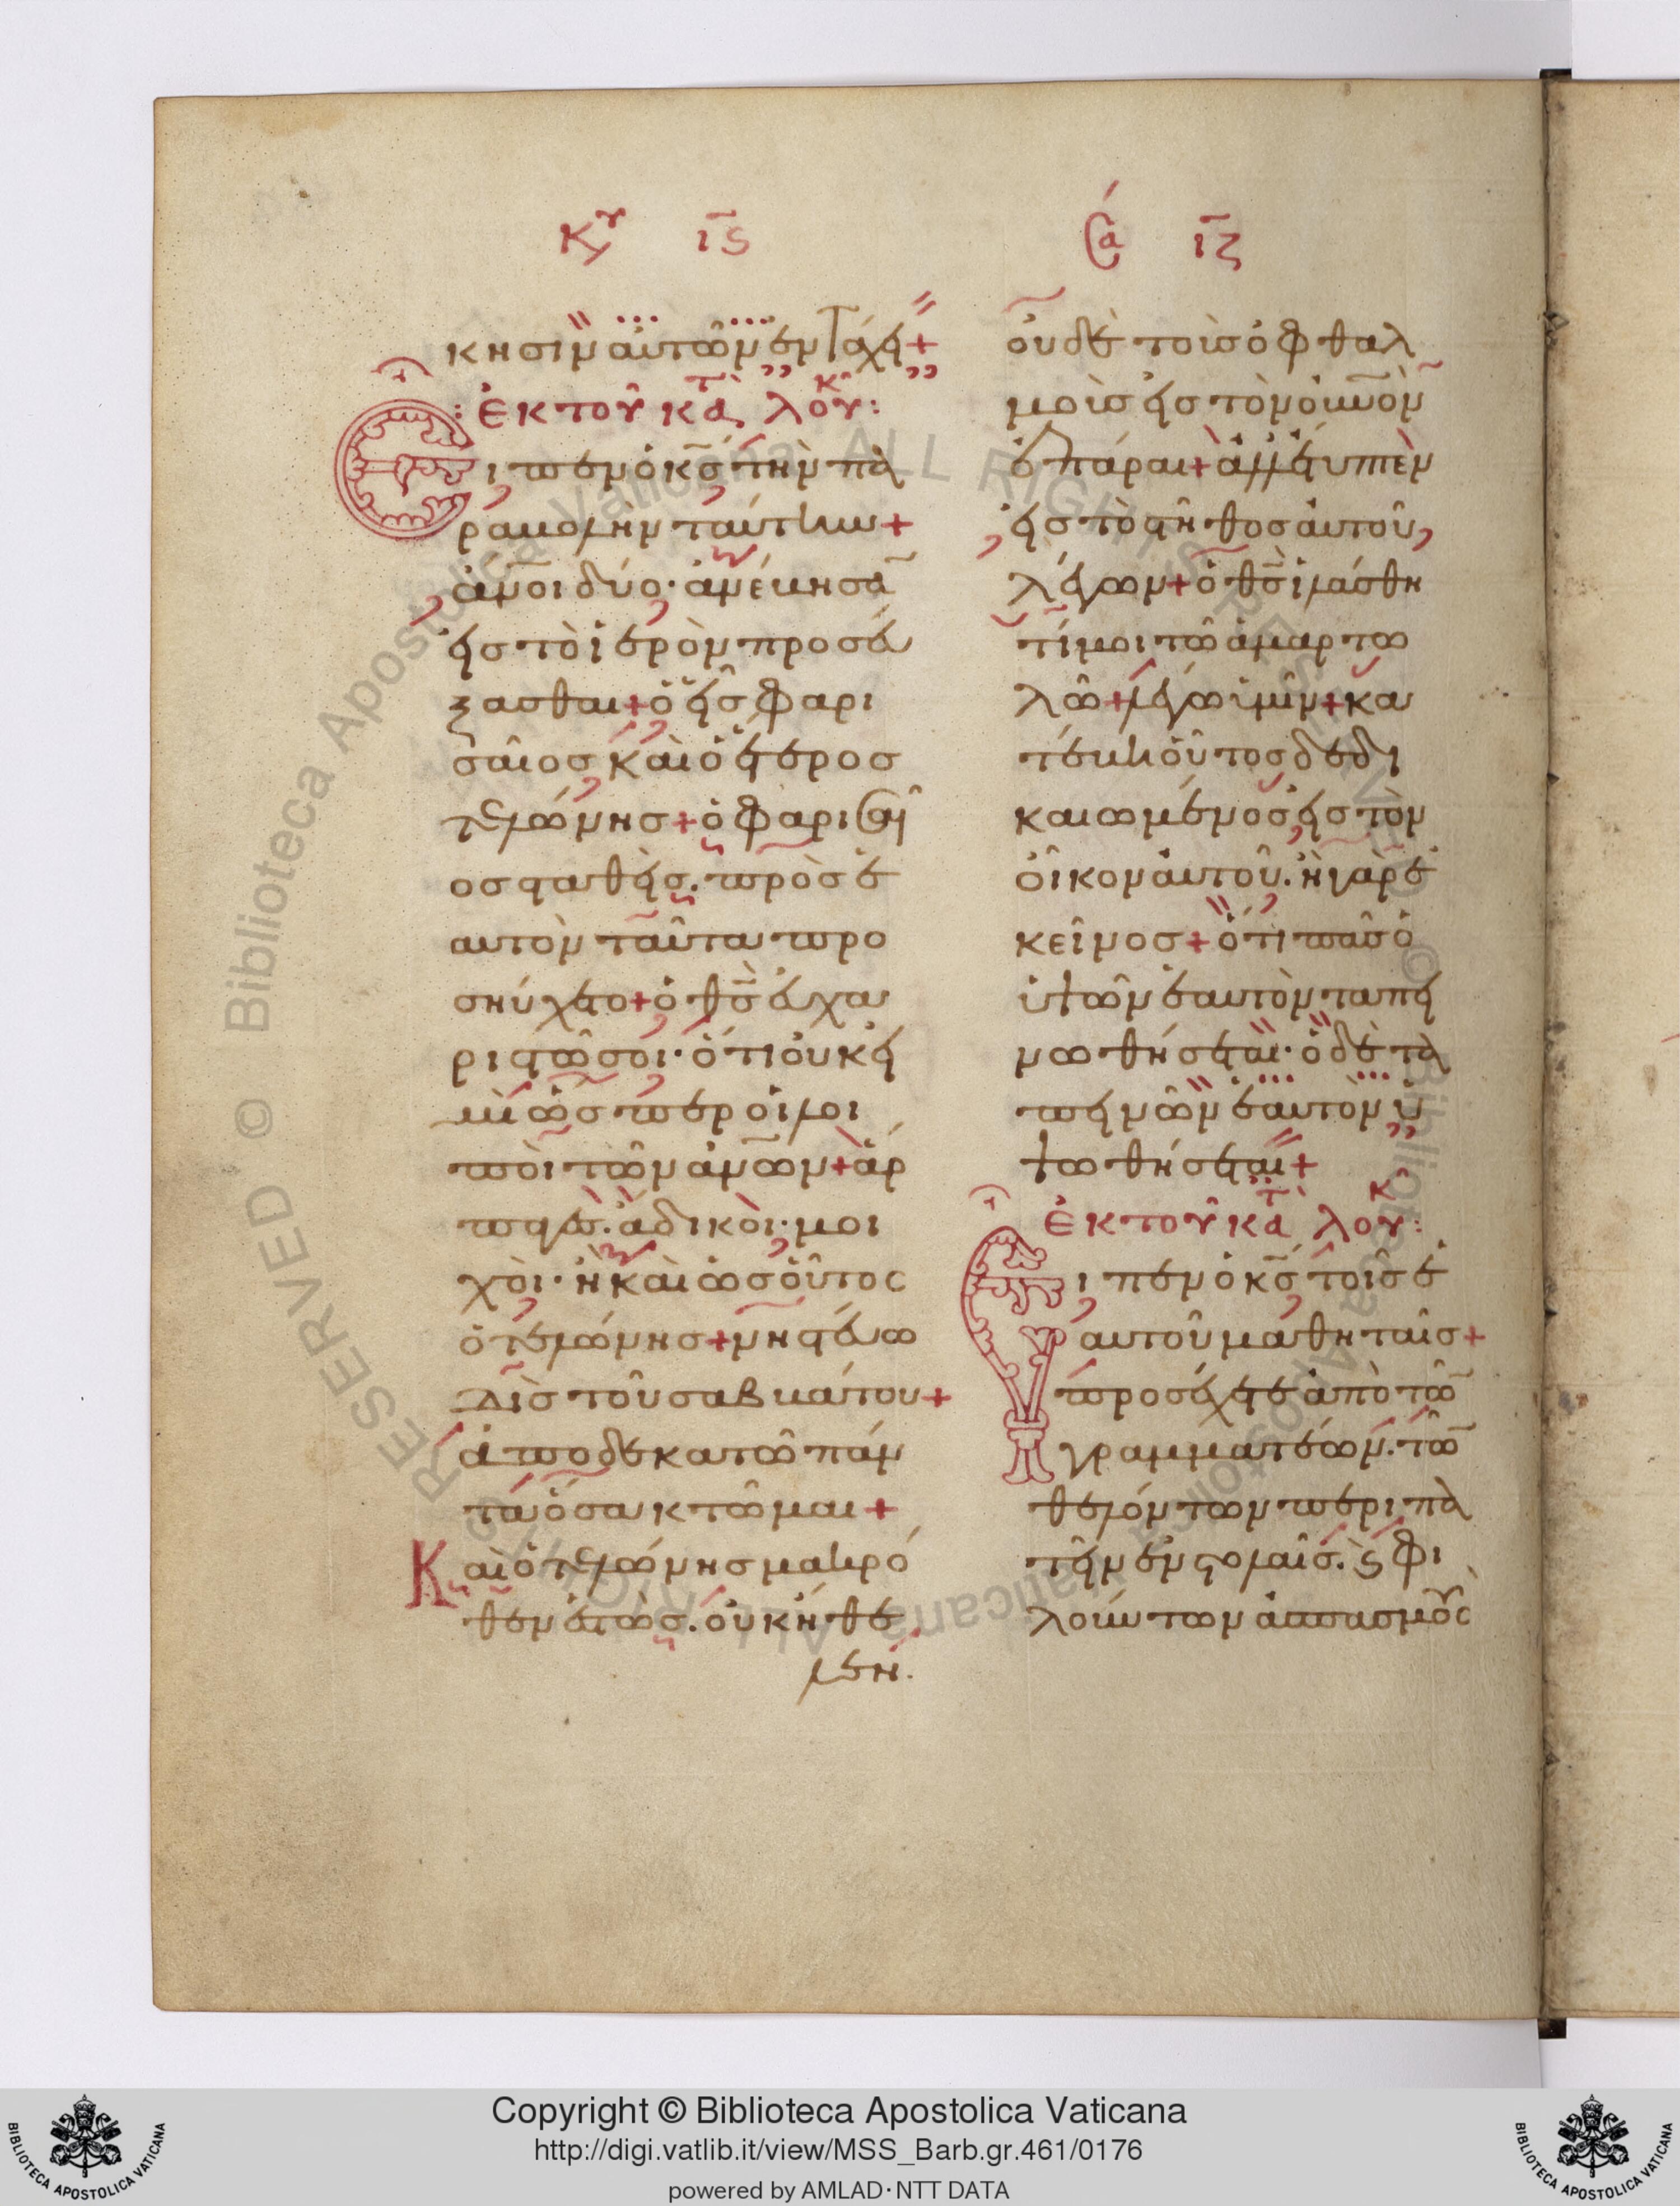 Κυ ιϛ
κησιν αὐτῶν ἐν τάχει+
ἐκ τοῦ κατὰ λουκ:
Εἶπεν ὁ κς τὴν πα
ραβολὴν ταύτην+
ἄνοι δύο· ἀνέβησα
εἰς τὸ ἱερὸν προσεύ
ξασθαι+ ὁ εἷς φαρι
σαῖος καὶ ὁ ἕτερος
τελώνης+ ὁ φαρισαῖ
ος σταθεὶς. πρὸς ἑ
αυτὸν ταῦτα προ
σηύχετο+ ὁ θς εὐχα
ριστῶ σοι· ὅτι οὐκ εἰ
μὶ ὥσπερ οἱ λοι
ποὶ τῶν ἀνων+ ἅρ
παγες. ἄδικοι· μοι
χοὶ· ἢ καὶ ὡς οὗτος
ὁ τελώνης+ νηστεύω
δὶς τοῦ σαββάτου+
ἀποδεκατῶ πάν
τα ὅσα κτῶμαι+
Καὶ ὁ τελώνης μακρό
θεν ἑστὼς. οὐκ ἤθε
λεν.
Σα ιζ
οὐδὲ τοὺς ὀφθαλ
μοὺς εἰς τὸν οὐνον
ἐπάραι+ ἀλλ' ἔτυπτεν
εἰς τὸ στῆθος αὐτοῦ,
λέγων+ ὁ θς ἱλάσθη
τί μοι τῶ ἁμαρτω
λῶ+ λέγω ὑμῖν+ κα
τέβη οὗτος δεδι
καιωμένος εἰς τὸν
οἶκον αὐτοῦ. ἢ γὰρ ἐ
κεῖνος+ ὅτι πᾶς ὁ
ὑψῶν ἑαυτὸν ταπει
νωθήσεται· ὁ δὲ τα
πεινῶν ἑαυτὸν ὑ
ψωθήσεται+
ἐκ τοῦ κατὰ λουκ:
Εἶπεν ὁ κς τοῖς ἑ
αυτοῦ μαθηταῖς+
προσέχετε ἀπὸ τῶ
γραμματέων. τῶ
θελόντων περιπα
τεῖν ἐν στολαῖς. ϗ φι
λούντων ἀσπασμοὺς
Copyright © Biblioteca Apostolica Vaticana
http://digi.vatlib.it/view/MSS_Barb.gr.461/0176
powered by AMLAD·NTT DATA
BIBLIOTECA APOSTOLICA VATICANA
BIBLIOTECA APOSTOLICA VATICANA